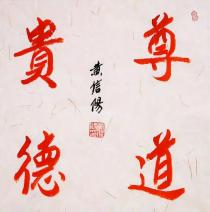 尊道
貴德
黄信陽